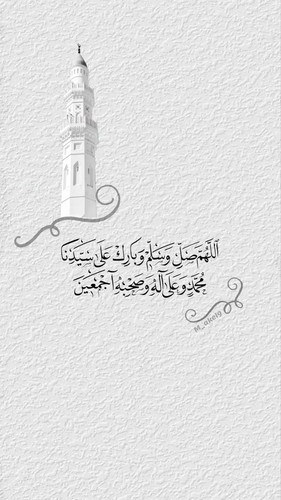 اللَّهُمَّ صَلِّ وَسَلِّمْ وَبَارِكْ عَلَى سَيِّدِنَا
مُحَمَّدٍ وَعَلَى آلِهِ وَصَحْبِهِ أَجْمَعِينَ